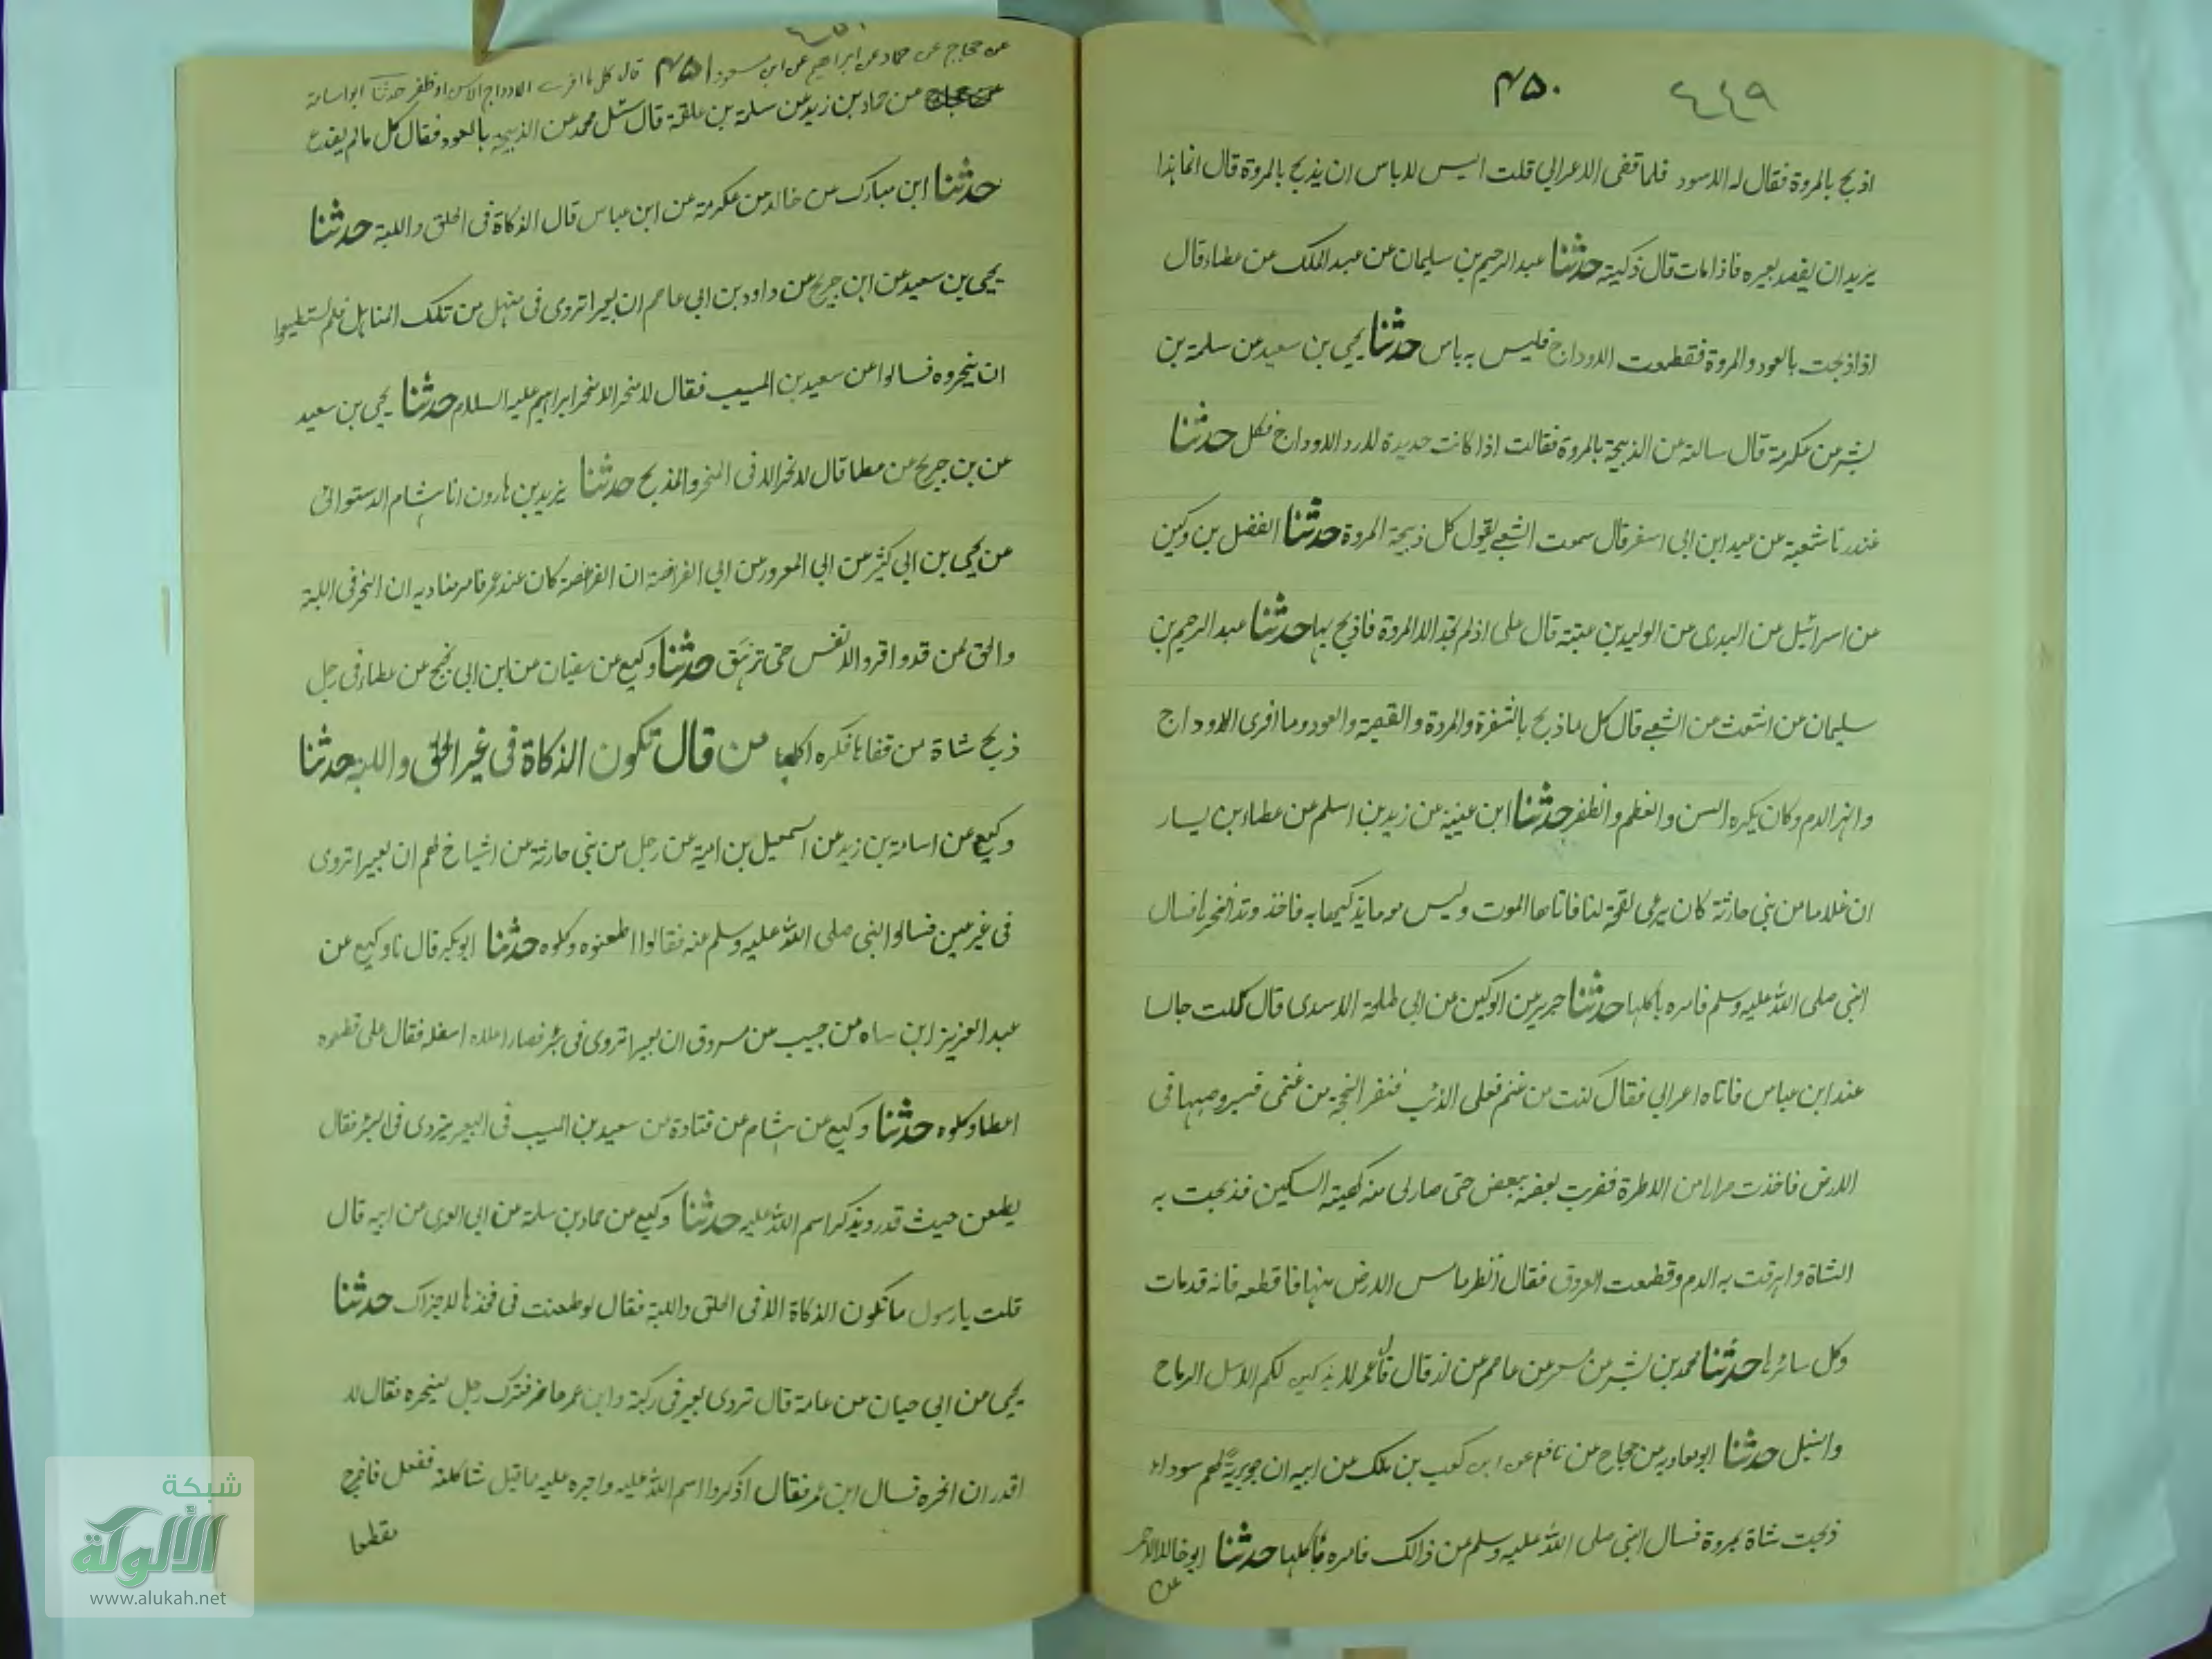 ٤٤٩ ۴۵۰
اذبح بالمروة فقال له الاسود فلما قفى الاعرابي قلت اليس لاباس ان يذبح بالمروة قال انما هذا
يريد ان يفقد بعيره فاذا مات قال ذكيته حدثنا عبد الرحيم بن سليمان عن عبد الملك عن عطاء قال
اذا ذبحت بالعود والمروة فقطعت الاوداج فليس به باس حدثنا يحيى بن سعيد عن سلمة بن
بشر عن عكرمة قال سالته عن الذبيحة بالمروة فقالت اذا كانت حديدة لا ترد الاوداج فكل حدثنا
غندر نا شعبة عن عبد ابن ابى اسفر قال سمعت الشعبي يقول كل ذبيحة المروة حدثنا الفضل بن دكين
عن اسرائيل عن السدى عن الوليد بن عتبة قال على اذ لم تجد الا المروة فاذبح بها حدثنا عبد الرحيم بن
سليمان عن اشعث عن الشعبي قال كل ما ذبح بالشفرة والمروة والقصبة والعود وما افرى الاوداج
وانهر الدم وكان يكره السن والعظم والظفر حدثنا ابن عيينة عن زيد بن اسلم عن عطاء بن يسار
ان غلاما من بني حارثة كان يرعى لقحة لنا فاتاها الموت وليس معه ما يذكيها به فاخذ وتدا فنحرها فسال
النبي صلى الله عليه وسلم فامره باكلها حدثنا جرير عن الركين عن ابي طلحة الاسدى قال كنت جالسا
عند ابن عباس فاتاه اعرابي فقال كنت من غنم فعلى الذئب فنفر النعجة من غنمى فسير وصبها فى
الارض فاخذت مرارا من الاطرة فضربت بعضه ببعض حتى صار لى منه كهيئة السكين فذبحت به
الشاة واهرقت به الدم وقطعت العروق فقال انظر ما مس الارض منها فاقطعه فانه قد مات
وكل سائرها حدثنا محمد بن بشر عن مسعر عن عاصم عن زر قال قال عمر لا يذكين لكم الاسل الرماح
والنبل حدثنا ابو معاوية عن حجاج عن نافع عن ابن كعب بن ملك عن ابيه ان جويرية لهم سوداء
ذبحت شاة بمروة فسال النبي صلى الله عليه وسلم عن ذالك فامره باكلها حدثنا ابو خالد الاحمر
عن
٤٥٠
عن حجاج عن حماد عن ابراهيم عن ابن مسعود ۴۵۱ قال كل ما افرى الاوداج الا سن او ظفر حدثنا ابو اسامة
عن حماد بن زيد عن سلمة بن علقمة قال سئل محمد عن الذبيحة بالعود فقال كل ما لم يفدع
حدثنا ابن مبارك عن خالد عن عكرمة عن ابن عباس قال الذكاة فى الحلق واللبة حدثنا
يحيى بن سعيد عن ابن جريج عن داود بن ابى عاصم ان بعيرا تروى فى منهل من تلك المناهل فلم يستطيعوا
ان ينحروه فسالوا عن سعيد بن المسيب فقال لا منحر الا منحر ابراهيم عليه السلام حدثنا يحيى بن سعيد
عن بن جريج عن عطا قال لا نحر الا فى المنحر والمذبح حدثنا يزيد بن هارون انا هشام الدستوائى
عن يحيى بن ابى كثير عن ابى المعرور عن ابى الفرافصة ان الفرافصة كان عند عمر فامر مناديه ان النحر فى اللبة
والحلق لمن قدر واقروا الانفس حتى تزهق حدثنا وكيع عن سفيان عن ابن ابى نجيح عن عطاء فى رجل
ذبح شاة من قفاها فكره اكلها من قال تكون الذكاة فى غير الحلق واللبة حدثنا
وكيع عن اسامة بن زيد عن اسمعيل بن امية عن رجل من بنى حارثة عن اشياخ لهم ان بعيرا تروى
فى غير عين فسالوا النبى صلى الله عليه وسلم عنه فقالوا اطعنوه وكلوه حدثنا ابو بكر قال نا وكيع عن
عبد العزيز ابن سياه عن حبيب عن مسروق ان بعيرا تروى فى بئر فصار اعلاه اسفله فقال على قطعوه
اعطا وكلوه حدثنا وكيع عن هشام عن قتادة عن سعيد بن المسيب فى البعير يتردى فى البئر فقال
يطعن حيث قدر ويذكر اسم الله عليه حدثنا وكيع عن حماد بن سلمة عن ابى العرى عن ابيه قال
قلت يا رسول ما تكون الذكاة الا فى الحلق واللبة فقال لو طعنت فى فخذها لاجزاك حدثنا
يحيى عن ابى حيان عن عامة قال تردى بعير فى ركية وابن عمر حاضر فترك رجل لينحره فقال لا
اقدر ان انحره فسال ابن عمر فقال اذكروا اسم الله عليه واجره عليه ما قبل شاكلته ففعل فاخرج
مقطعا
شبكة
الألوكة
www.alukah.net